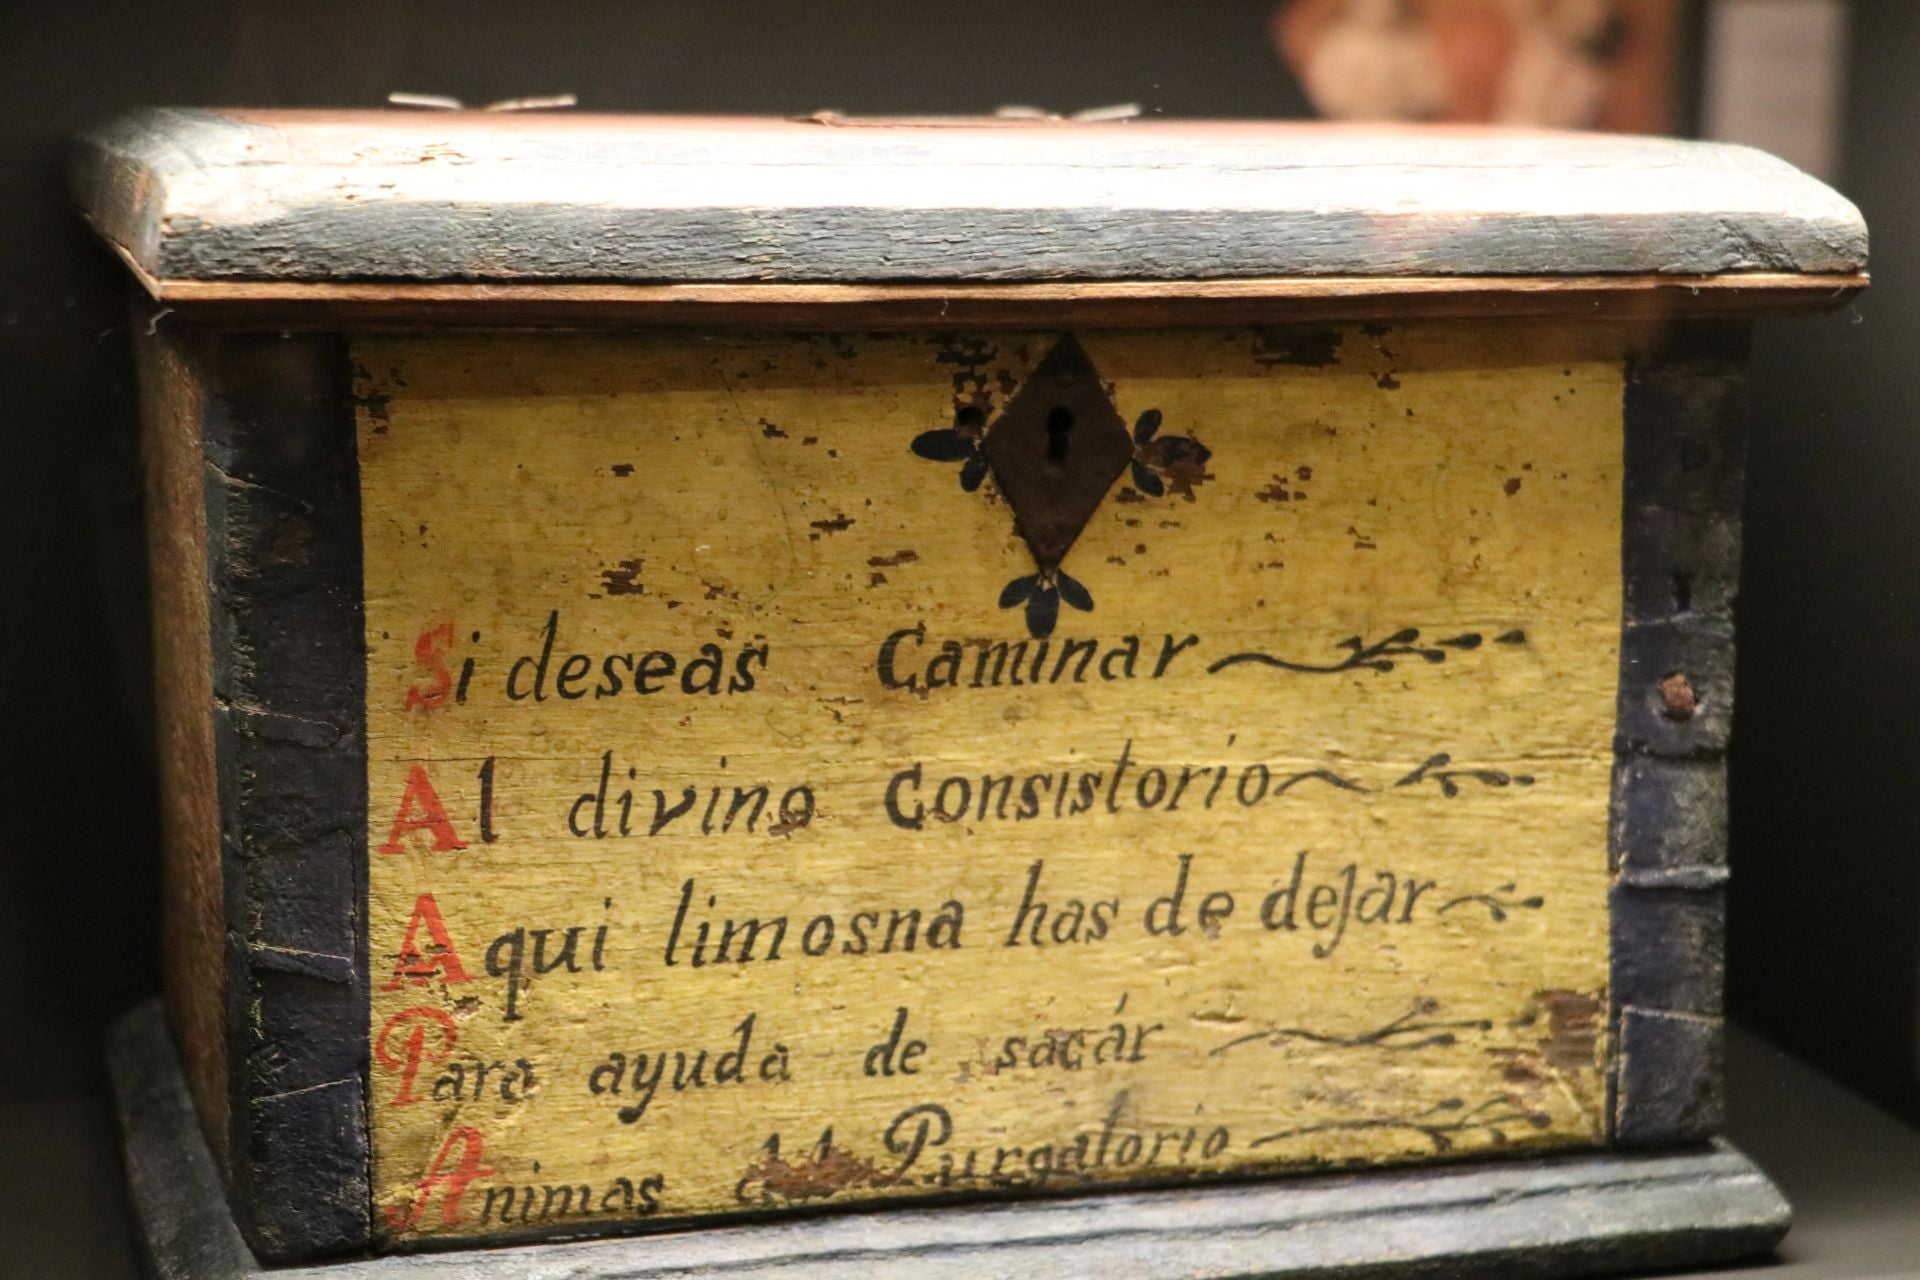 Si deseas Caminar
Al divino Consistorio
Aqui limosna has de dejar
Para ayuda de sacár
Animas del Purgatorio